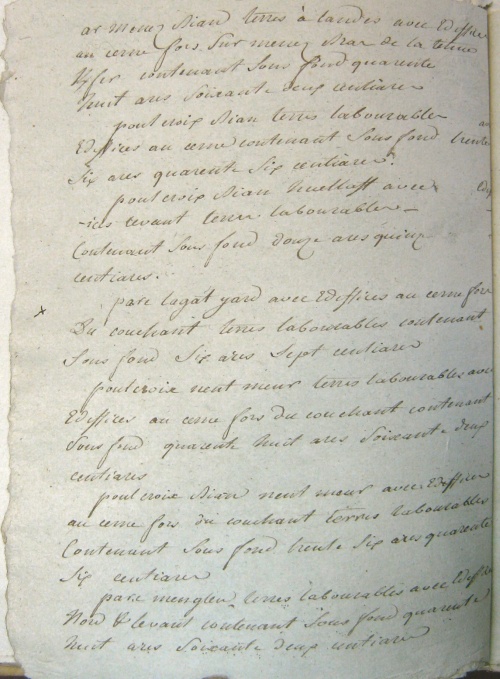 ar menez Bian terres à landes avec Ediffices
au cerne fors Sur menez Braz de la tenue
contenant Sous fond quarente
huit ares Soixante deux centiares
poulcroix Bian terres labourables
Ediffices au cerne contenant Sous fond trente
Six ares quarente Six centiares.
poulcroix Bian huellaff avec Edif
-ices levant terres labourables -
Contenant Sous fond douze ares quinze
centiares.
x parc lagat yard avec Ediffices au cerne fors
Du couchant terres labourables contenant
Sous fond Six ares Sept centiares
poulcroix nent meur terres labourables avec
Ediffices au cerne fors du couchant contenant
Sous fond quarente huit ares Soixante deux
centiares
poulcroix Bian nent meur avec Ediffices
au cerne fors du couchant terres labourables
Contenant Sous fond trente Six ares quarente
Six centiares
parc menglen terres labourables avec Ediffices
Nord & levant contenant Sous fond quarente
huit ares Soixante deux centiares